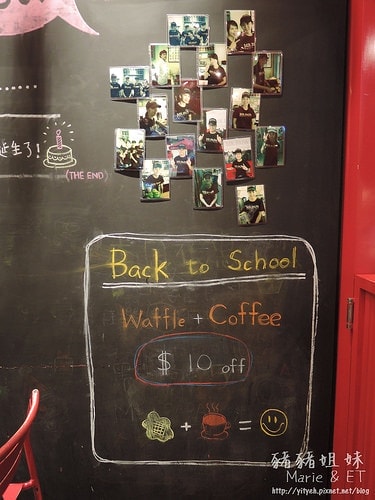 誕生了!
(THE END)
Back to School
Waffle + Coffee
$ 10 off
+ =
豬豬姐妹
Marie & ET
http://yityeh.pixnet.net/blog